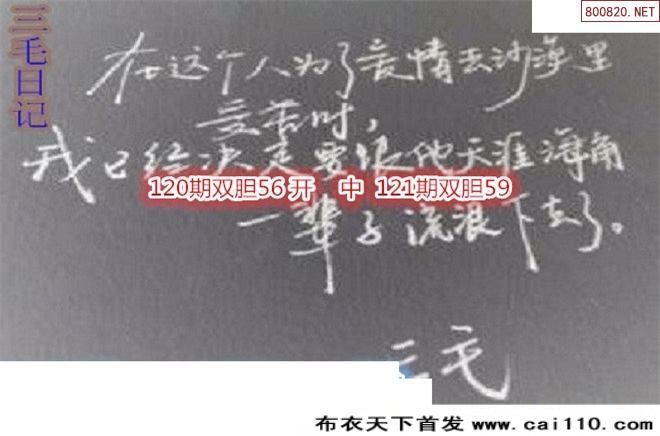 800820.NET
三毛日记
在这个人为了爱情去沙漠里
受苦时，
我已经决定要跟他天涯海角
120期双胆56开 中 121期双胆59
一辈子流浪下去了。
三毛
布衣天下首发 www.cai110.com